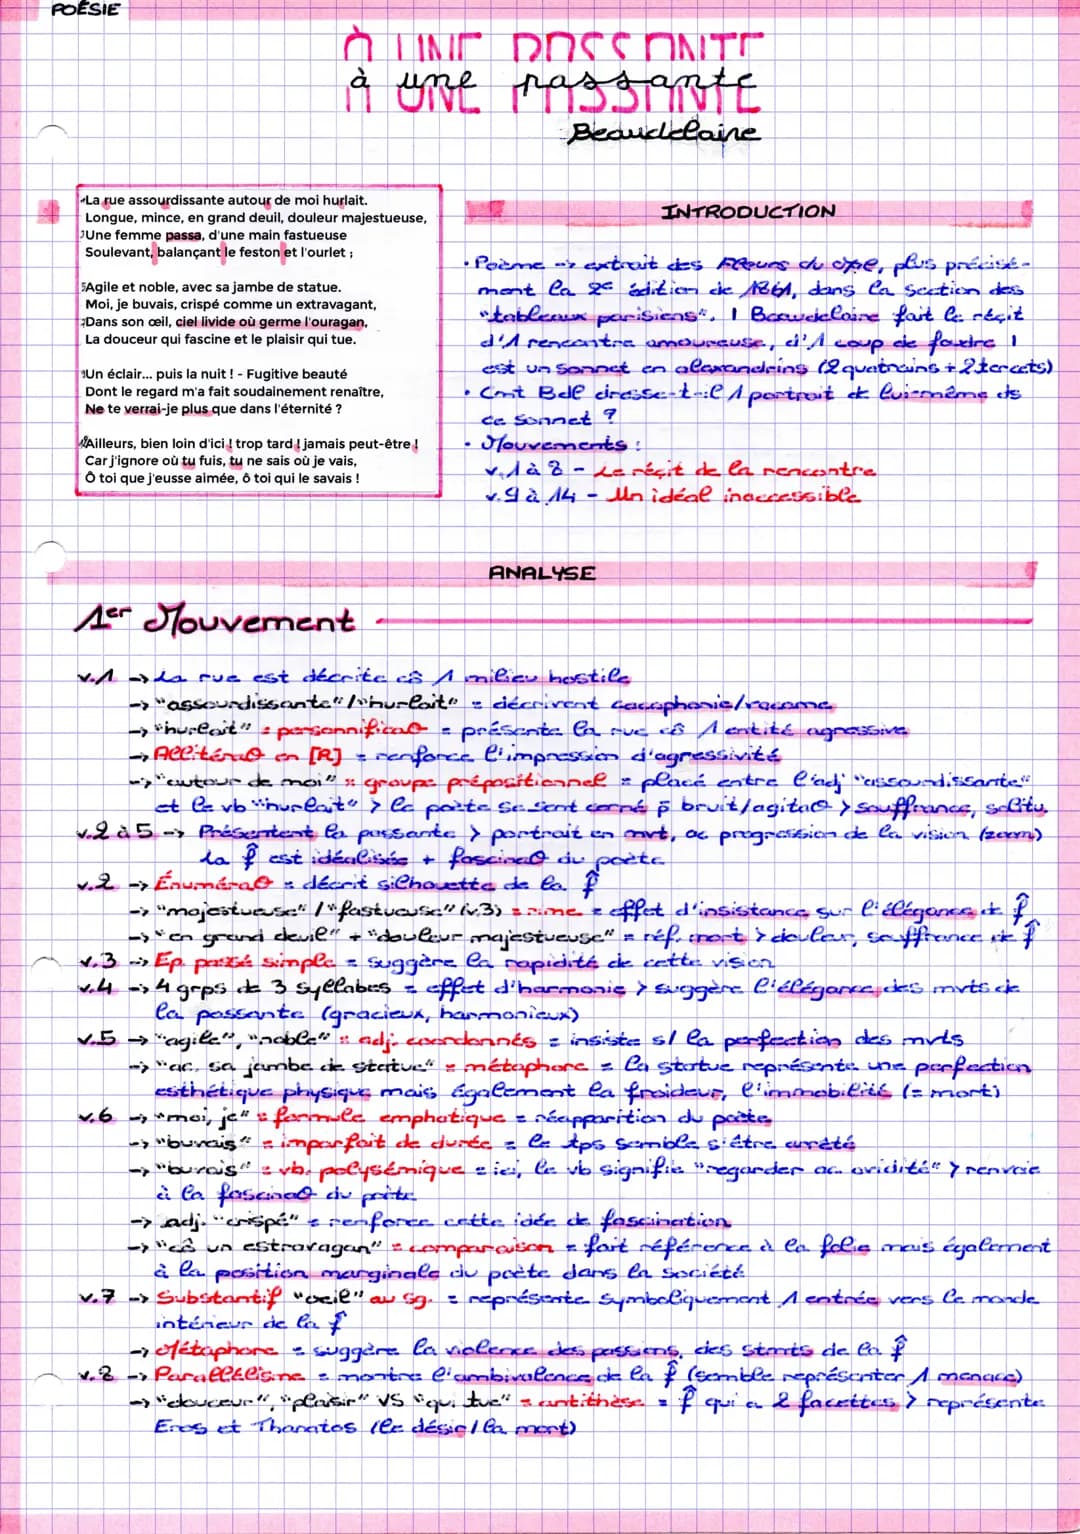 POÉSIE
À UNE PASSANTE
à une passante
Beaudelaire
La rue assourdissante autour de moi hurlait.
Longue, mince, en grand deuil, douleur majestueuse,
3Une femme passa, d'une main fastueuse
Soulevant, balançant le feston et l'ourlet ;
5Agile et noble, avec sa jambe de statue.
Moi, je buvais, crispé comme un extravagant,
7Dans son œil, ciel livide où germe l'ouragan,
La douceur qui fascine et le plaisir qui tue.
9Un éclair... puis la nuit ! - Fugitive beauté
Dont le regard m'a fait soudainement renaître,
Ne te verrai-je plus que dans l'éternité ?
Ailleurs, bien loin d'ici ! trop tard ! jamais peut-être !
Car j'ignore où tu fuis, tu ne sais où je vais,
Ô toi que j'eusse aimée, ô toi qui le savais !
INTRODUCTION
• Poème -> extrait des Fleurs du , plus précisé-
ment la 2e édition de 1861, dans la section des
"tableaux parisiens". | Beaudelaire fait le récit
d'1 rencontre amoureuse, d'1 coup de foudre |
est un sonnet en alexandrins (2 quatrains + 2 tercets)
• Cmt Bdl dresse-t-il 1 portrait de lui-même ds
ce sonnet ?
• Mouvements :
v.1 à 8 - Le récit de la rencontre
v.9 à 14 - Un idéal inaccessible
ANALYSE
1er Mouvement
v.1 -> La rue est décrite cô 1 milieu hostile
-> "assourdissante" / "hurlait" = décrivent cacophonie/vacarme
-> "hurlait" = personnificaO = présente la rue cô 1 entité agressive
-> AllitéraO en [R] = renforce l'impression d'agressivité
-> "autour de moi" = groupe prépositionnel = placé entre l'adj "assourdissante"
et le vb "hurlait" > le poète se sent cerné p̄ bruit/agitaO > souffrance, solitu.
v.2 à 5 -> Présentent la passante > portrait en mvt, ac progression de la vision (zoom)
la f̂ est idéalisée + fascinaO du poète
v.2 -> ÉnuméraO = décrit silhouette de la f̂
-> "majestueuse" / "fastueuse" (v.3) = rime = effet d'insistance sur l'élégance de f̂
-> "en grand deuil" + "douleur majestueuse" = réf. mort > douleur, souffrance de f̂
v.3 -> Ep. passé simple = suggère la rapidité de cette vision
v.4 -> 4 grps de 3 syllabes = effet d'harmonie > suggère l'élégance des mvts de
la passante (gracieux, harmonieux)
v.5 -> "agile", "noble" = adj. coordonnés = insiste s/ la perfection des mvts
-> "ac. sa jambe de statue" = métaphore = la statue représente une perfection
esthétique physique mais également la froideur, l'immobilité (= mort)
v.6 -> "moi, je" = formule emphatique = réapparition du poète
-> "buvais" = imparfait de durée = le tps semble s'être arrêté
-> "buvais" = vb. polysémique = ici, le vb signifie "regarder ac avidité" > renvoie
à la fascinaO du poète
-> adj. "crispé" = renforce cette idée de fascination
-> "cô un extravagan" = comparaison = fait référence à la folie mais également
à la position marginale du poète dans la société
v.7 -> Substantif "oeil" au sg. = représente symboliquement 1 entrée vers le monde
intérieur de la f̂
-> Métaphore = suggère la violence des passions, des stmts de la f̂
v.8 -> Parallélisme = montre l'ambivalence de la f̂ (semble représenter 1 menace)
-> "douceur", "plaisir" VS "qui tue" = antithèse = f̂ qui a 2 facettes > représente
Eros et Thanatos (le désir/la mort)